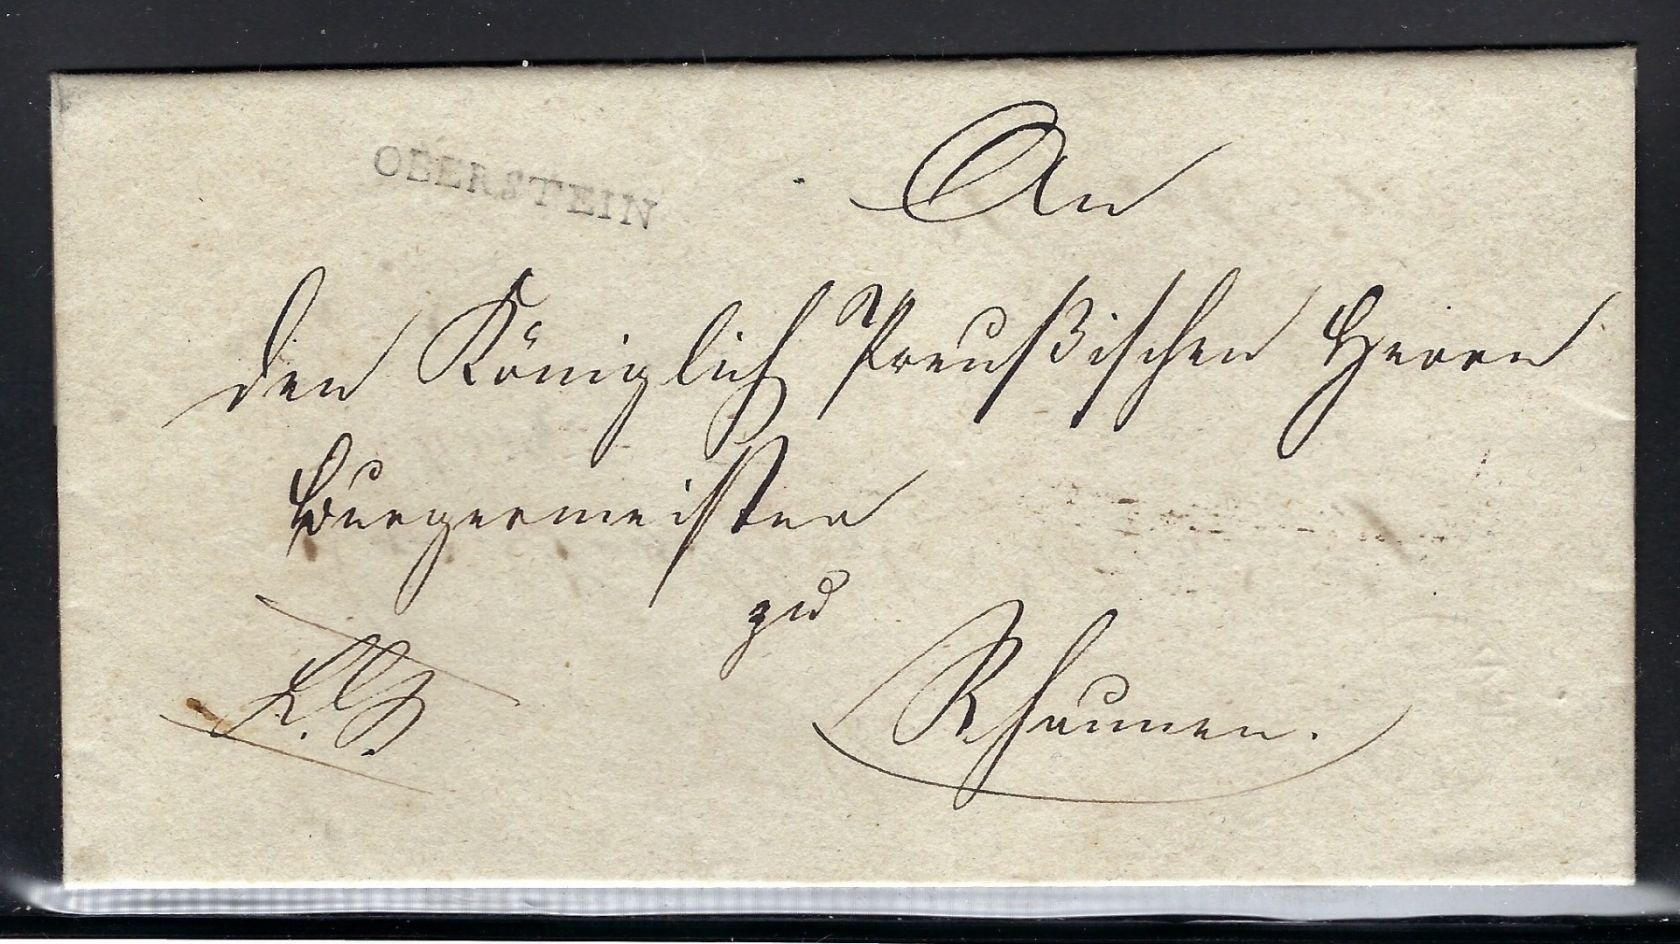 OBERSTEIN
An
den Königlich Preußischen Herrn
Burgermeister
zu
Rhaunen.